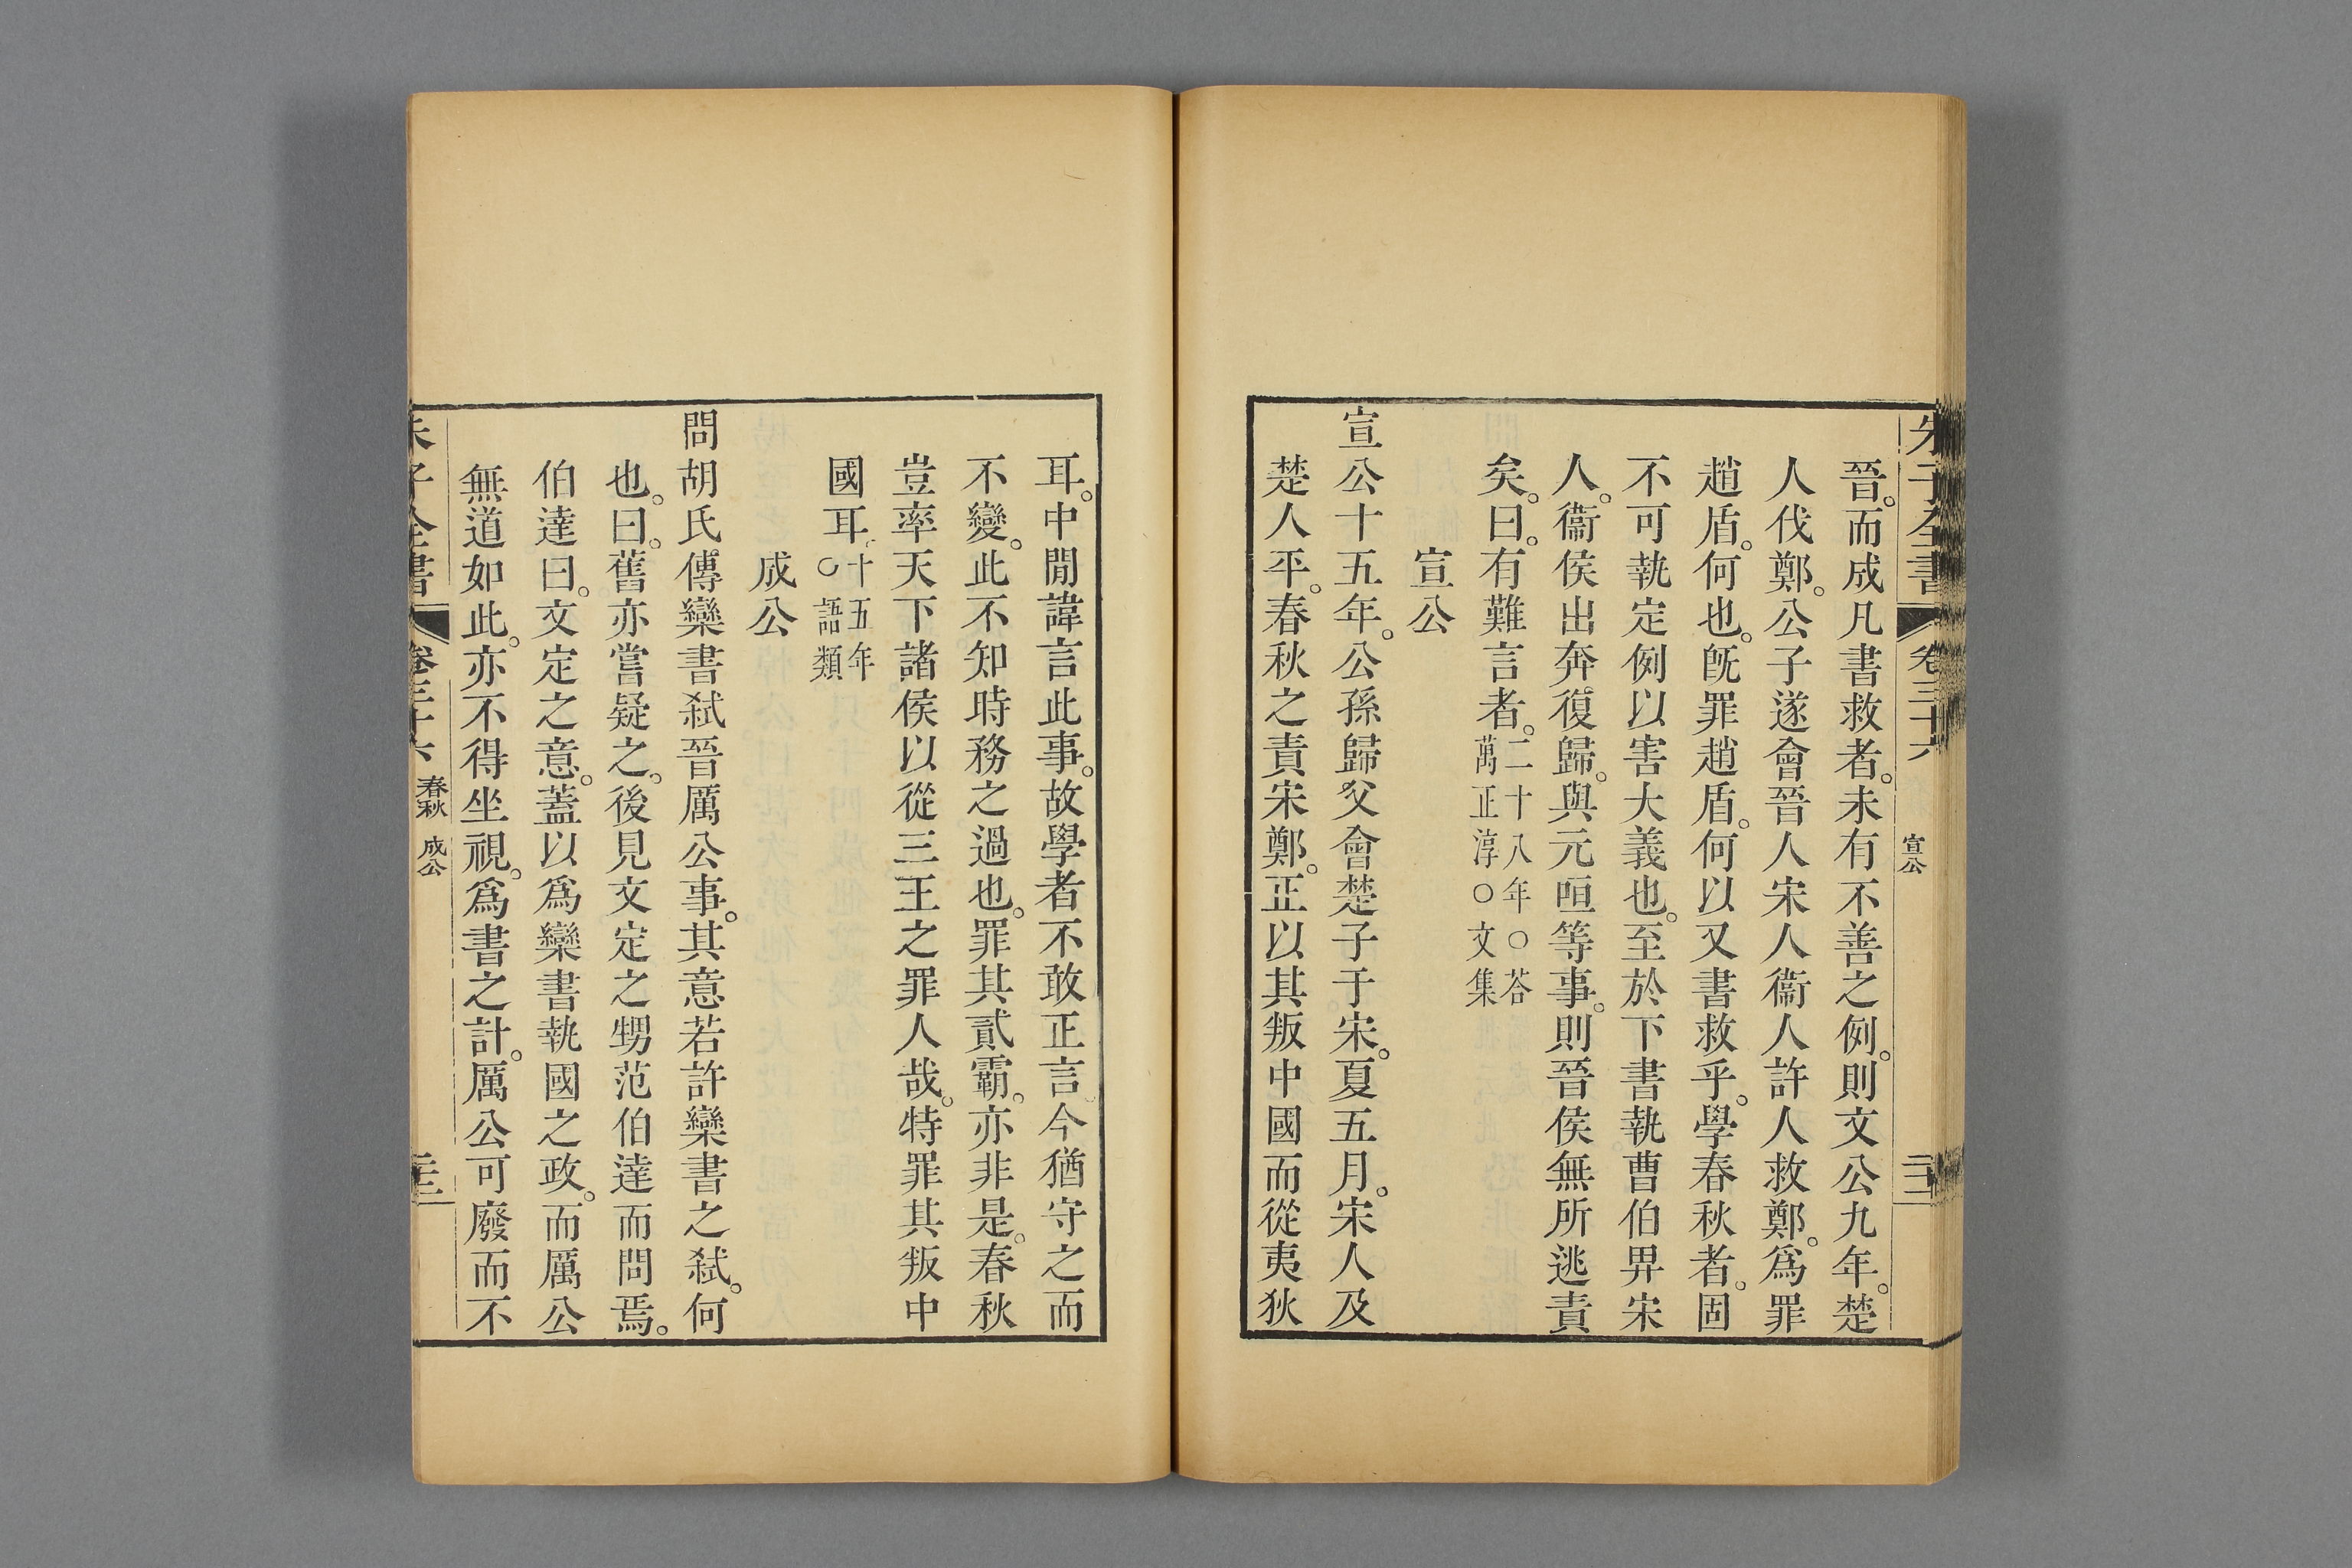 朱子全書 卷三十六 宣公 二十二
晉。而成凡書救者。未有不善之例。則文公九年。楚
人伐鄭。公子遂會晉人宋人衞人許人救鄭。爲罪
趙盾。何也。旣罪趙盾。何以又書救乎。學春秋者。固
不可執定例以害大義也。至於下書執曹伯畀宋
人。衞侯出奔復歸。與元咺等事。則晉侯無所逃責
矣。曰。有難言者。二十八年○荅萬正淳○文集
宣公
宣公十五年。公孫歸父會楚子于宋。夏五月。宋人及
楚人平。春秋之責宋鄭。正以其叛中國而從夷狄
耳。中閒諱言此事。故學者不敢正言。今猶守之而
不變。此不知時務之過也。罪其貳霸。亦非是。春秋
豈率天下諸侯以從三王之罪人哉。特罪其叛中
國耳。十五年○語類
成公
問胡氏傳欒書弑晉厲公事。其意若許欒書之弑。何
也。曰。舊亦嘗疑之。後見文定之甥范伯達而問焉。
伯達曰。文定之意。蓋以爲欒書執國之政。而厲公
無道如此。亦不得坐視。爲書之計。厲公可廢而不
朱子全書 卷三十六 春秋 成公 二十三